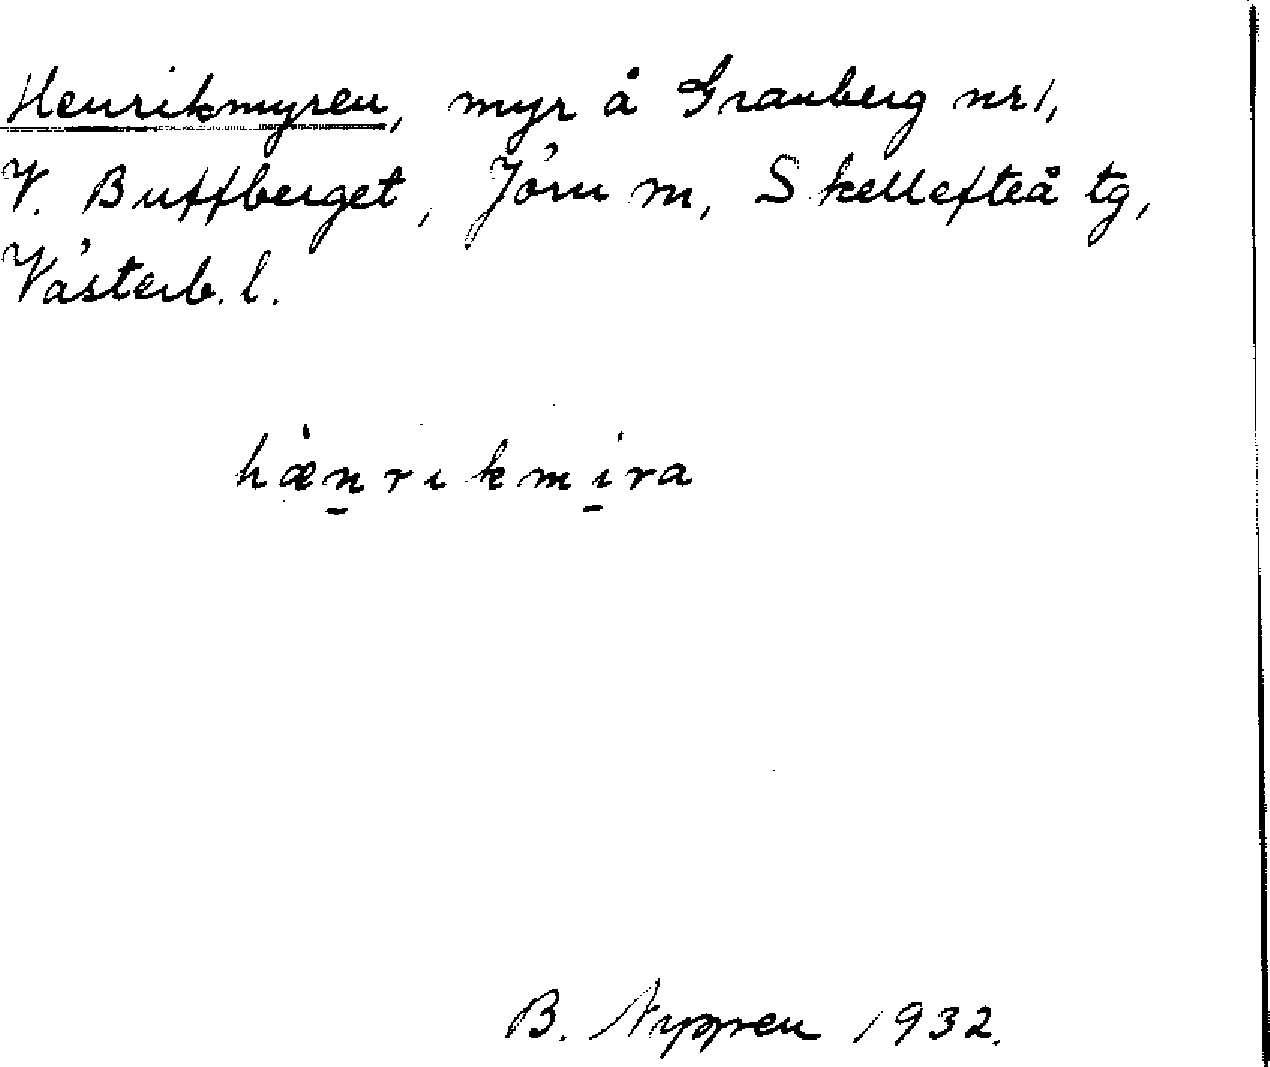 Henrikmyren, myr å Granberg nr 1,
V. Buffberget, Jörn m, Skellefteå tg,
Västerb. l.
hænrikmira
B. Nyppren 1932.